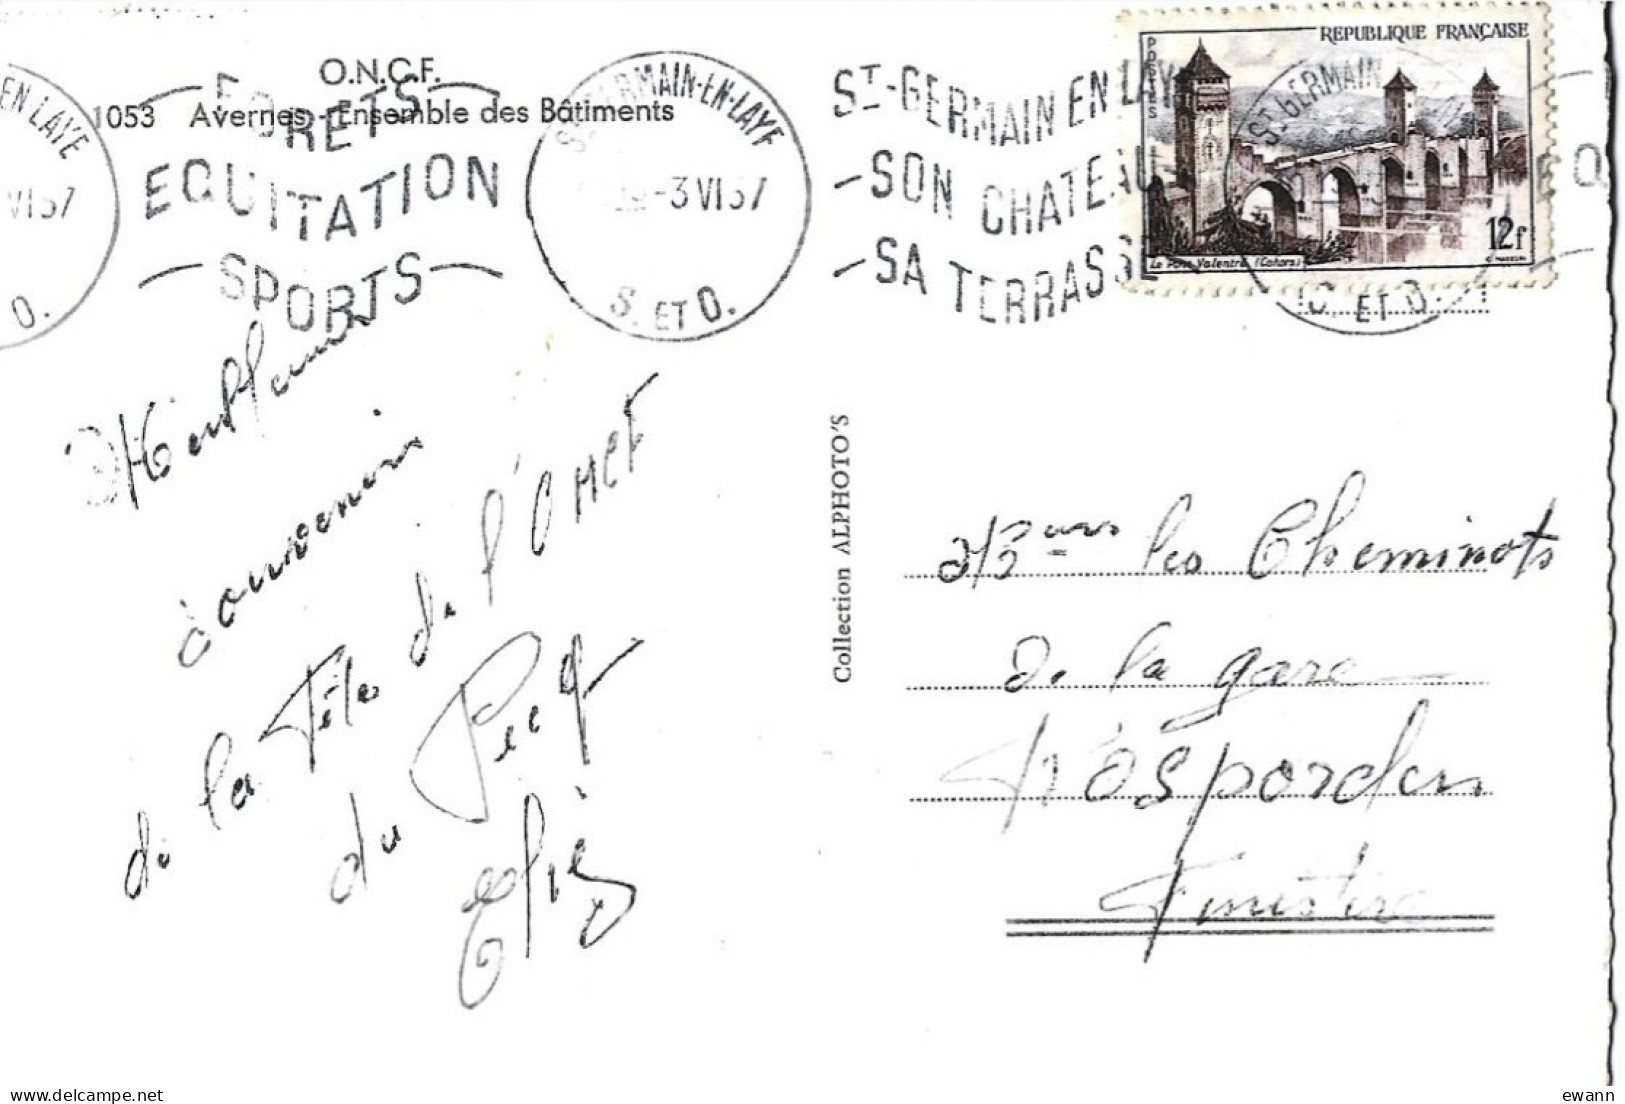 O.N.C.F.
1053 Avernes - Ensemble des Bâtiments
EN LAYE
VI 57
O.
FORETS
EQUITATION
SPORTS
ST GERMAIN-EN-LAYE
-3 VI 57
S. ET O.
ST-GERMAIN EN LAYE
SON CHATEAU
SA TERRASSE
REPUBLIQUE FRANÇAISE
POSTES
12f
Le Pont Valentré (Cahors)
ST GERMAIN
S. ET O.
Meilleurs
souvenirs
de la Fête de l'OMCF
du Pecq
Collection ALPHOTO'S
les Cheminots
de la gare
Rosporden
Finistère
ewann